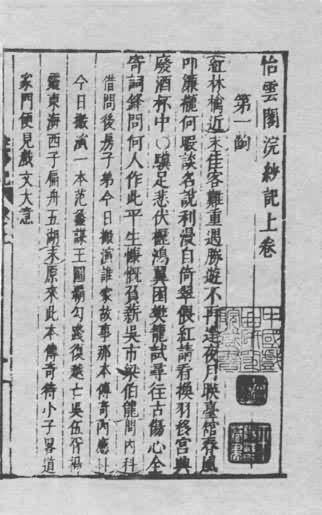 怡雲閣浣紗記上卷
第一齣
紅林檎近末佳客難重遇勝遊不再逢夜月映臺館春風
叩簾櫳何暇談名說利漫自倚翠偎紅請看換羽移宮興
廢酒杯中〇驥足悲伏櫪鴻翼困樊籠試尋往古傷心全
寄詞鋒問何人作此平生慷慨負薪吳市梁伯龍問內科
借問後房子弟今日搬演誰家故事那本傳奇內應
今日搬演一本范蠡謀王圖霸勾踐復越亡吳伍胥揚
靈東海西子偏舟五湖末原來此本傳奇待小子畧道
家門便見戲文大意